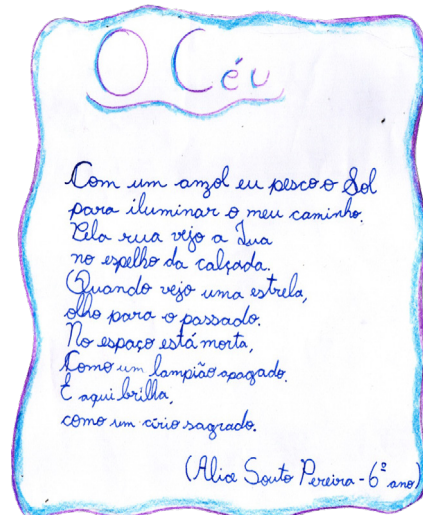 O Céu
Com um anzol eu pesco o Sol
para iluminar o meu caminho.
Pela rua vejo a Lua
no espelho da calçada.
Quando vejo uma estrela,
olho para o passado.
No espaço está morta,
Como um lampião apagado.
E aqui brilha,
como um círio sagrado.
(Alice Souto Pereira - 6º ano)